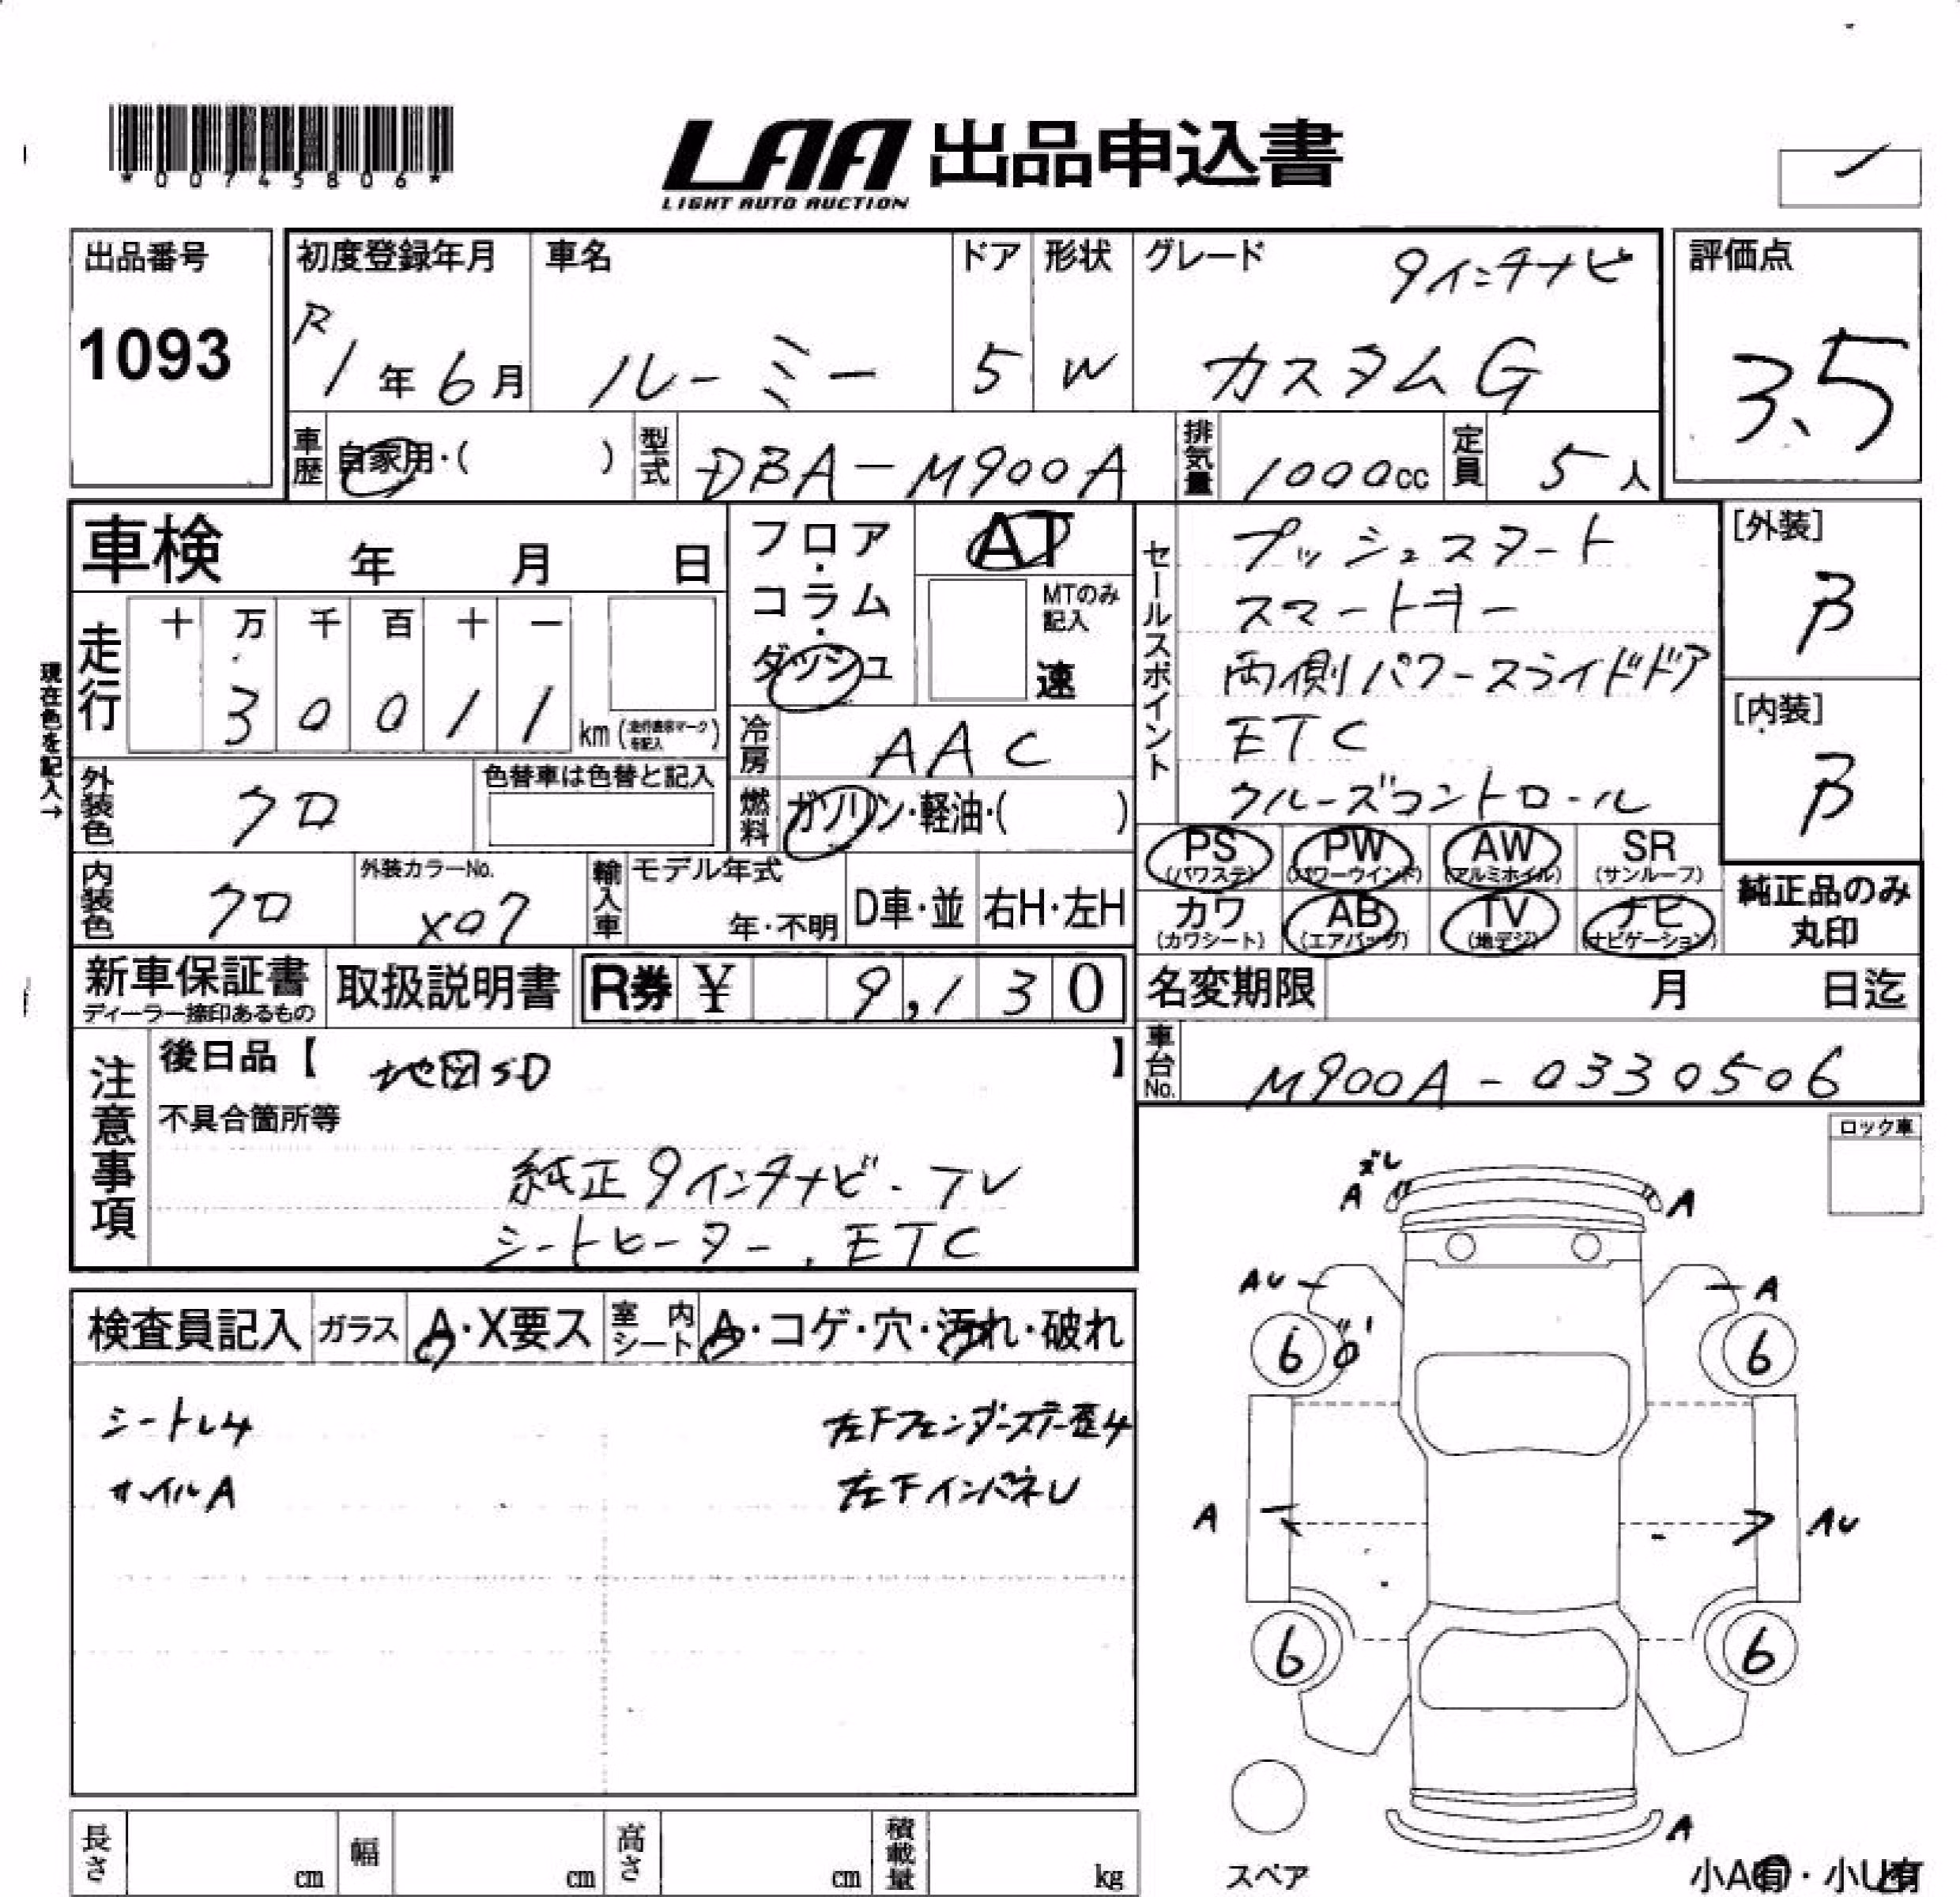 *00745806*
LAA 出品申込書
LIGHT AUTO AUCTION
出品番号
1093
初度登録年月
R1年6月
車名
ルーミー
ドア
5
形状
W
グレード
9インチナビ
カスタムG
評価点
3.5
車歴
自家用・( )
型式
DBA-M900A
排気量
1000cc
定員
5人
車検 年 月 日
フロア・コラム・ダッシュ
AT
MTのみ記入
速
セールスポイント
プッシュスタート
スマートキー
両側パワースライドドア
ETC
クルーズコントロール
[外装]
B
[内装]
B
現在色を記入→
走行
十 万 千 百 十 一
3 0 0 1 1
km(走行表示マークを記入)
冷房
AAC
外装色
クロ
色替車は色替と記入
燃料
ガソリン・軽油・( )
PS
(パワステ)
PW
(パワーウインド)
AW
(アルミホイル)
SR
(サンルーフ)
カワ
(カワシート)
AB
(エアバッグ)
TV
(地デジ)
ナビ
(ナビゲーション)
純正品のみ
丸印
内装色
クロ
外装カラーNo.
X07
輸入車
モデル年式
年・不明
D車・並
右H・左H
新車保証書
ディーラー捺印あるもの
取扱説明書
R券 ¥ 9,130
名変期限 月 日迄
車台No.
M900A-0330506
注意事項
後日品【 地図SD 】
不具合箇所等
純正9インチナビ・TV
シートヒーター、ETC
ロック車
検査員記入
ガラス
A・X要ス
室内シート
A・コゲ・穴・汚れ・破れ
シートL4
ホイルA
左下インパネU
ズレ
A
A
AU
A
6
6
A
AU
6
6
A
スペア
小A有・小U有
長さ cm
幅 cm
高さ cm
積載量 kg